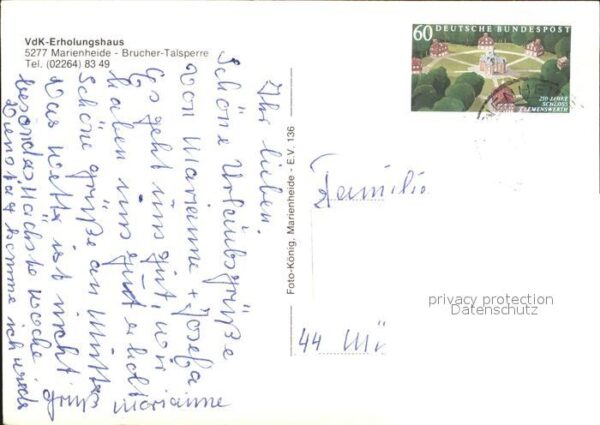 VdK-Erholungshaus
5277 Marienheide - Brucher-Talsperre
Tel. (02264) 83 49
Ihr lieben.
Schöne Urlaubsgrüße
von Marianne + Josefa
Es geht uns gut, wir
haben uns gut erholt
Schöne grüße an Mutter
Das wetter ist nicht
besonders Nächste woche
Dienstag komme ich
Marianne
Foto-König, Marienheide - E.V. 136
60 DEUTSCHE BUNDESPOST
250 JAHRE
SCHLOSS
CLEMENSWERTH
Familie
44 Mü
privacy protection
Datenschutz